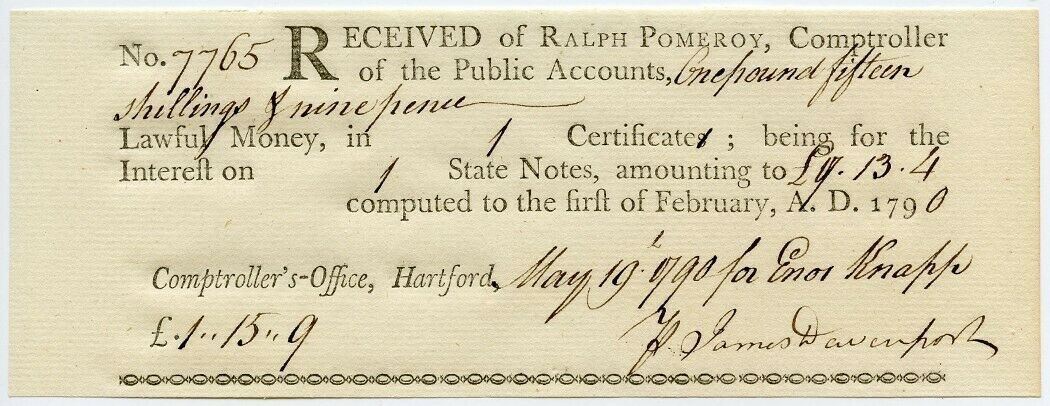 No. 7765 RECEIVED of RALPH POMEROY, Comptroller
of the Public Accounts, One pound fifteen
shillings & nine pence
Lawful Money, in 1 Certificates ; being for the
Intereſt on 1 State Notes, amounting to £9. 13. 4
computed to the firſt of February, A. D. 1790
Comptroller's-Office, Hartford, May 19th 1790 for Enos Knapp
£. 1,, 15,, 9 James Davenport